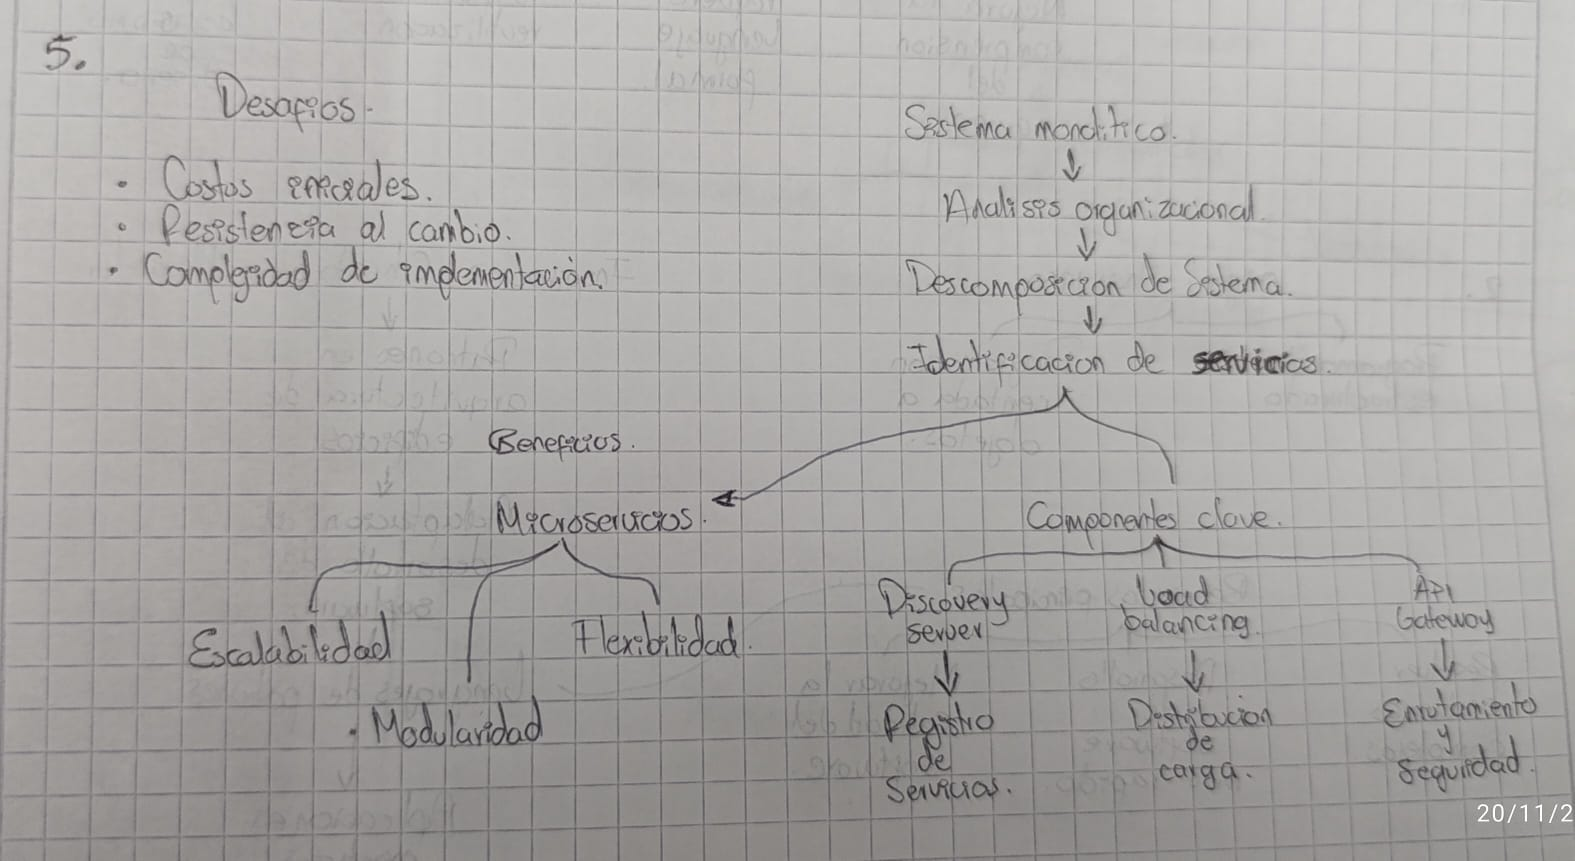 5.
Desafios.
• Costos iniciales.
• Resistencia al cambio.
• Complegidad de implementación.
Sistema monolitico.
↓
Analisis organizacional.
↓
Descomposicion de Sistema.
↓
Identificacion de servicios.
Beneficios.
Microservicios.
Escalabilidad
Flexibilidad.
• Modularidad
Componentes clave.
Discovery
server
↓
Registro
de
Servicios.
Load
balancing.
↓
Distribucion
de
carga.
API
Gateway
↓
Enrutamiento
y
Seguridad.
20/11/2